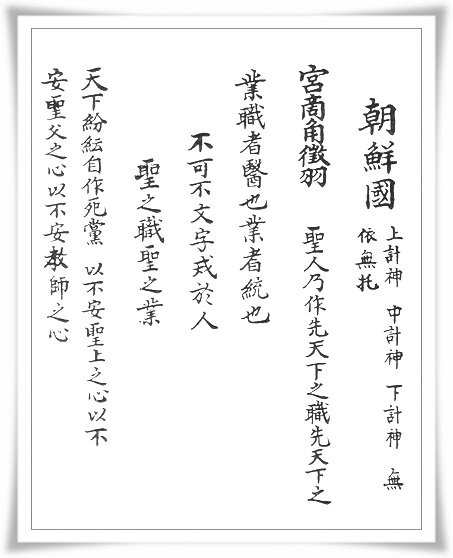 朝鮮國
上計神 中計神 下計神 無
依無托
宮商角徵羽 聖人乃作先天下之職先天下之
業職者醫也業者統也
不可不文字戎於人
聖之職聖之業
天下紛紜自作死黨 以不安聖上之心以不
安聖父之心以不安教師之心